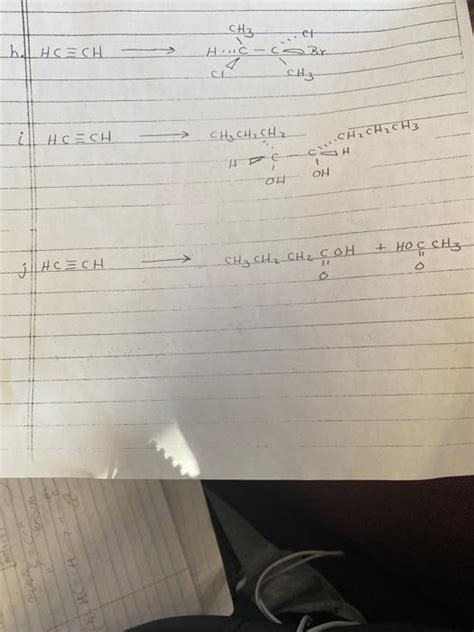 CH3 Cl
h. HC≡CH ⟶ H C – C Br
Cl CH3
i. HC≡CH ⟶ CH3CH2CH2 CH2CH2CH3
H C – C H
OH OH
j. HC≡CH ⟶ CH3CH2CH2COH + HOCCH3
O O